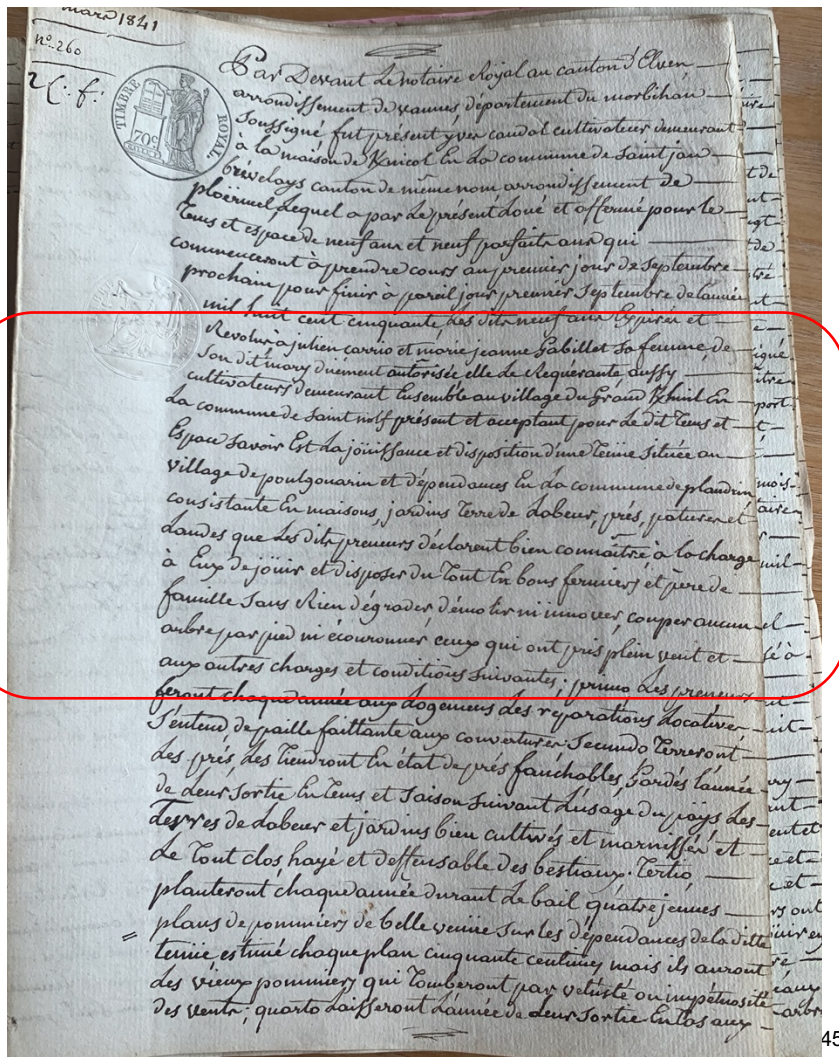 mars 1841
n° 260
2 C. f.
TIMBRE ROYAL
70c
Par Devant Le notaire Royal au canton d'Elven
arrondissement de vannes département du morbihan
Soussigné fut présent yves caudal cultivateur demeurant
à la maison de Knicol En La commune de Saint jan
brévelays canton de même nom arrondissement de
ploërmel, Lequel a par Le présent Loué et affermé pour le
tems et espace de neuf ans et neuf parfaits ans qui
commenceront à prendre cours au premier jour de Septembre
prochain pour finir à pareil jour premier Septembre de Lannée
mil huit cent cinquante, Les dits neuf ans Expirés et
Revolus, à julien carrio et marie jeanne Gabillet Sa femme, de
Son dit mary duement autorisée elle Le Requerante aussy
cultivateurs demeurant Ensemble au village du Grand Khuil En
La commune de Saint nolf présent et acceptant pour Le dit Tems et
Espace Savoir Est La joüissance et disposition d'une Teniie Située au
village de poulgouarin et dépendances En La commune de plaudren,
consistante En maisons, jardins Terre de Labeur, prés, patures et
Landes que Les dits preneurs déclarent bien connaître à la charge
à Eux de joüir et disposer du Tout En bons fermiers et père de
famille Sans Rien dégrader démolir ni innover, couper aucun
arbre par pied ni écouronner ceux qui ont pris plein vent et
aux autres charges et conditions Suivantes; primo Les preneurs
feront chaque année aux Logemens des réparations Locatives
S'entend de paille faittante aux couvertures Secundo Terreront
Les prés, Les Tiendront En état de prés fauchables, Gardés L'année
de Leur Sortie En Tems et Saison Suivant L'usage du pays Les
Terres de Labeur et jardins bien cultivés et marnissés et
Le Tout clos, hayé et deffensable des bestiaux. Tertio
planteront chaque année durant Le bail quatre jeunes
plans de pommiers de belle veniie Sur les dépendances de la ditte
teniie estimé chaque plan cinquante centimes mais ils auront
Les vieux pommiers qui Tomberont par vetusté ou impétuosité
des vents; quarto Laisseront L'année de Leur Sortie En tas aux
45